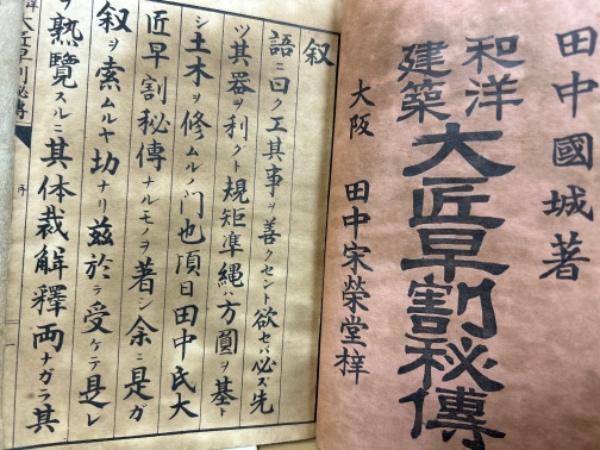 田中國城著
和洋
建築
大匠早割秘傳
大阪 田中宋榮堂梓
叙
語ニ曰ク工其事ヲ善クセント欲セバ必ズ先
ツ其器ヲ利クト規矩準縄ハ方圓ヲ基ト
シ土木ヲ修ムルノ門也頃日田中氏大
匠早割秘傳ナルモノヲ著シ余ニ是ガ
叙ヲ索ムルヤ切ナリ茲於テ受ケテ是レ
ヲ熟覧スルニ其体裁解釋両ナガラ其
洋大匠早割秘傳 序 一